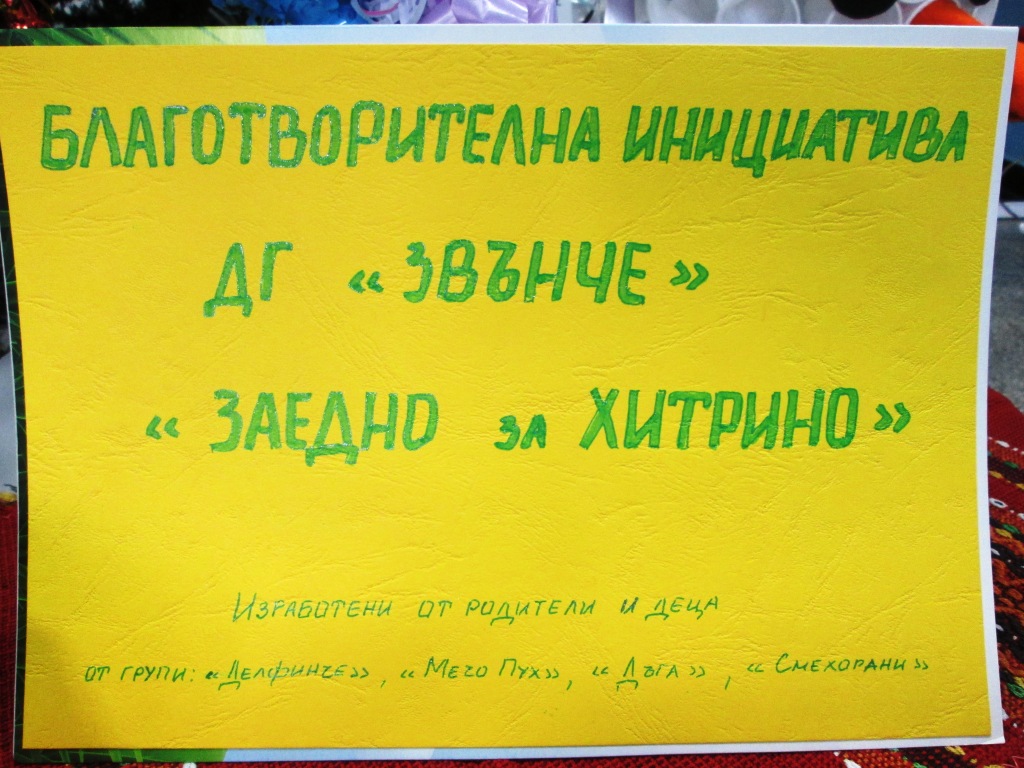 БЛАГОТВОРИТЕЛНА ИНИЦИАТИВА
ДГ « ЗВЪНЧЕ »
« ЗАЕДНО ЗА ХИТРИНО »
ИЗРАБОТЕНИ ОТ РОДИТЕЛИ И ДЕЦА
ОТ ГРУПИ: «Делфинче», «Мечо Пух», «Дъга», «Смехорани»